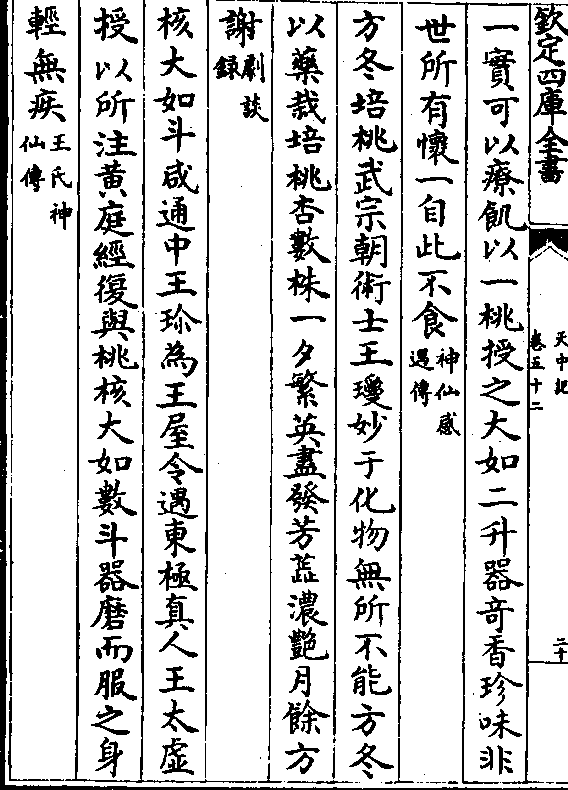 欽定四庫全書
天中記
卷五十二
二十
一實可以療飢以一桃授之大如二升器奇香珍味非
世所有懷一自此不食神仙感
遇傳
方冬培桃武宗朝術士王瓊妙于化物無所不能方冬
以藥栽培桃杏數株一夕繁英盡發芳蕋濃艷月餘方
謝劇談
録
核大如斗咸通中王珎為王屋令遇東極真人王太虛
授以所注黃庭經復與桃核大如數斗器磨而服之身
輕無疾王氏神
仙傳